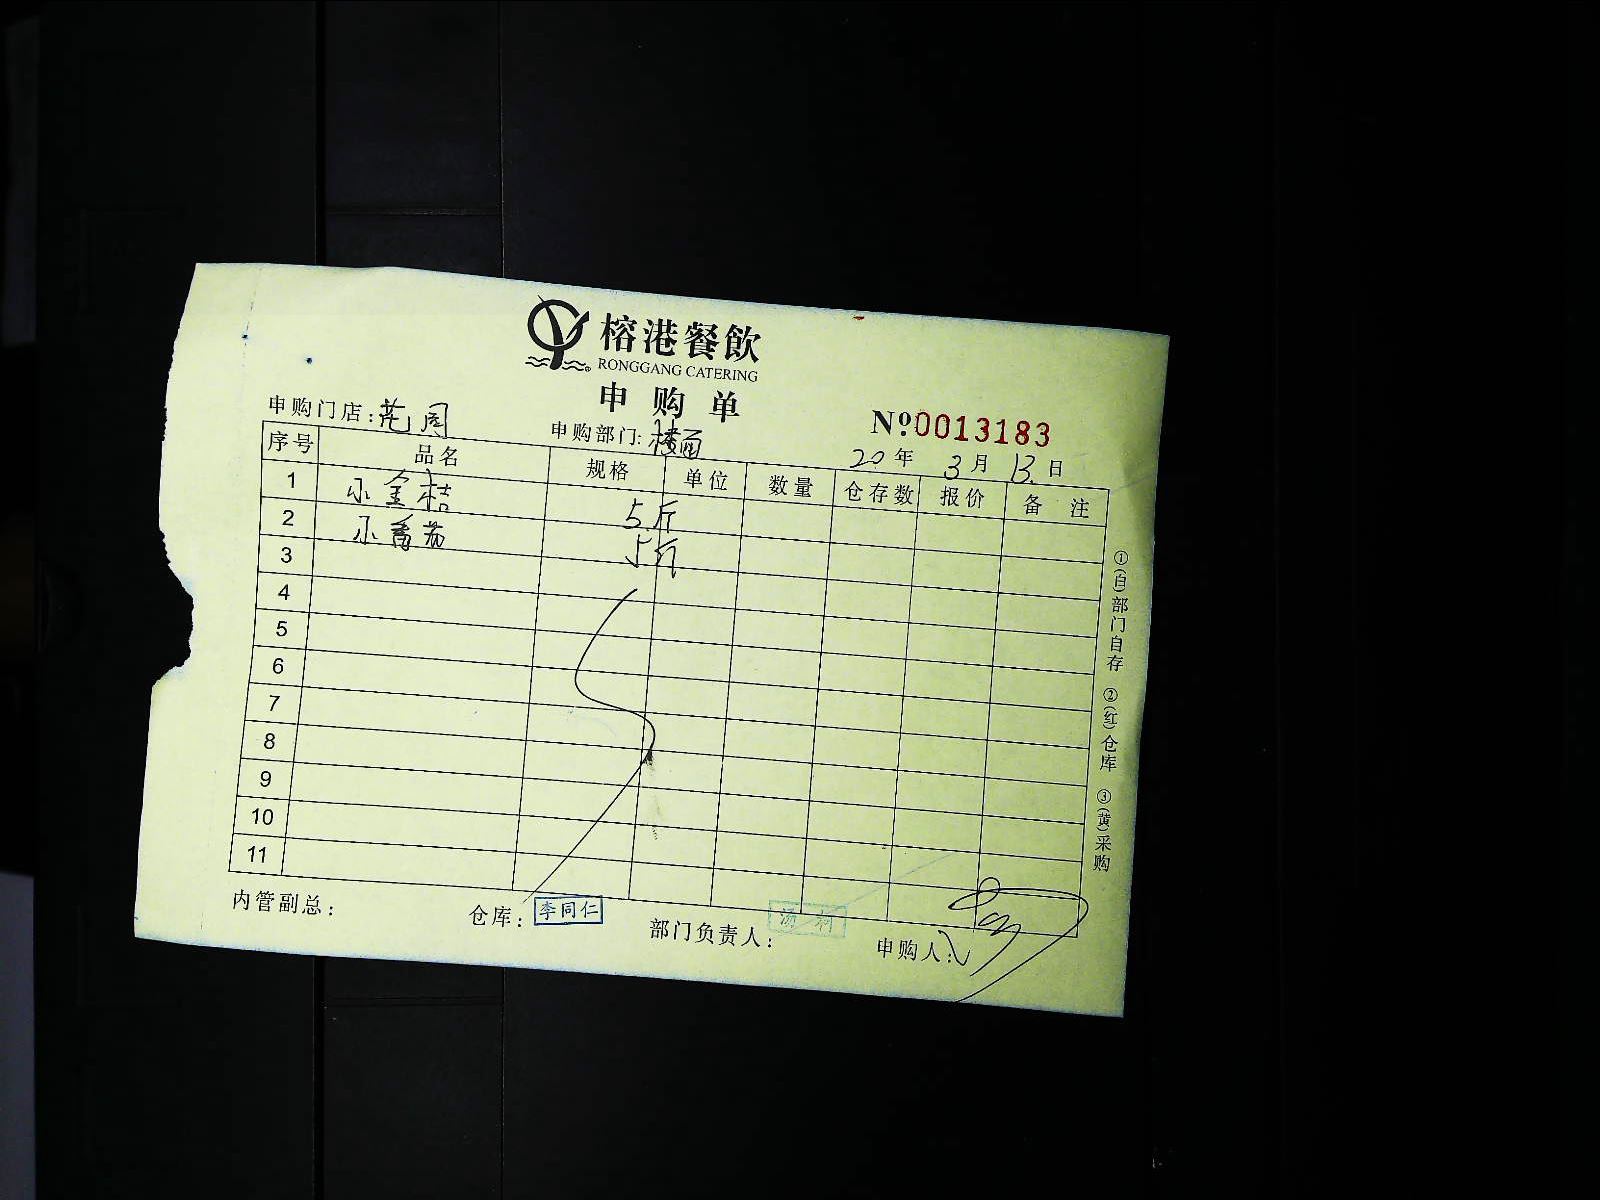 榕港餐飲
RONGGANG CATERING
申购单
申购门店:花园
申购部门:楼面
№0013183
20年3月13日
序号 品名 规格 单位 数量 仓存数 报价 备注
1 小金桔 5斤
2 小番茄 5斤
3
4
5
6
7
8
9
10
11
内管副总:
仓库: 李同仁
部门负责人:
申购人:
①(白)部门自存 ②(红)仓库 ③(黄)采购